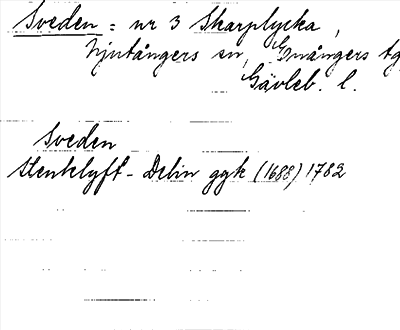 Sveden = nr 3 Skarplycka,
Njutångers sn, Enångers tg
Gävleb. l.
Sveden
Stenklyft - Delin ggk (1688) 1782